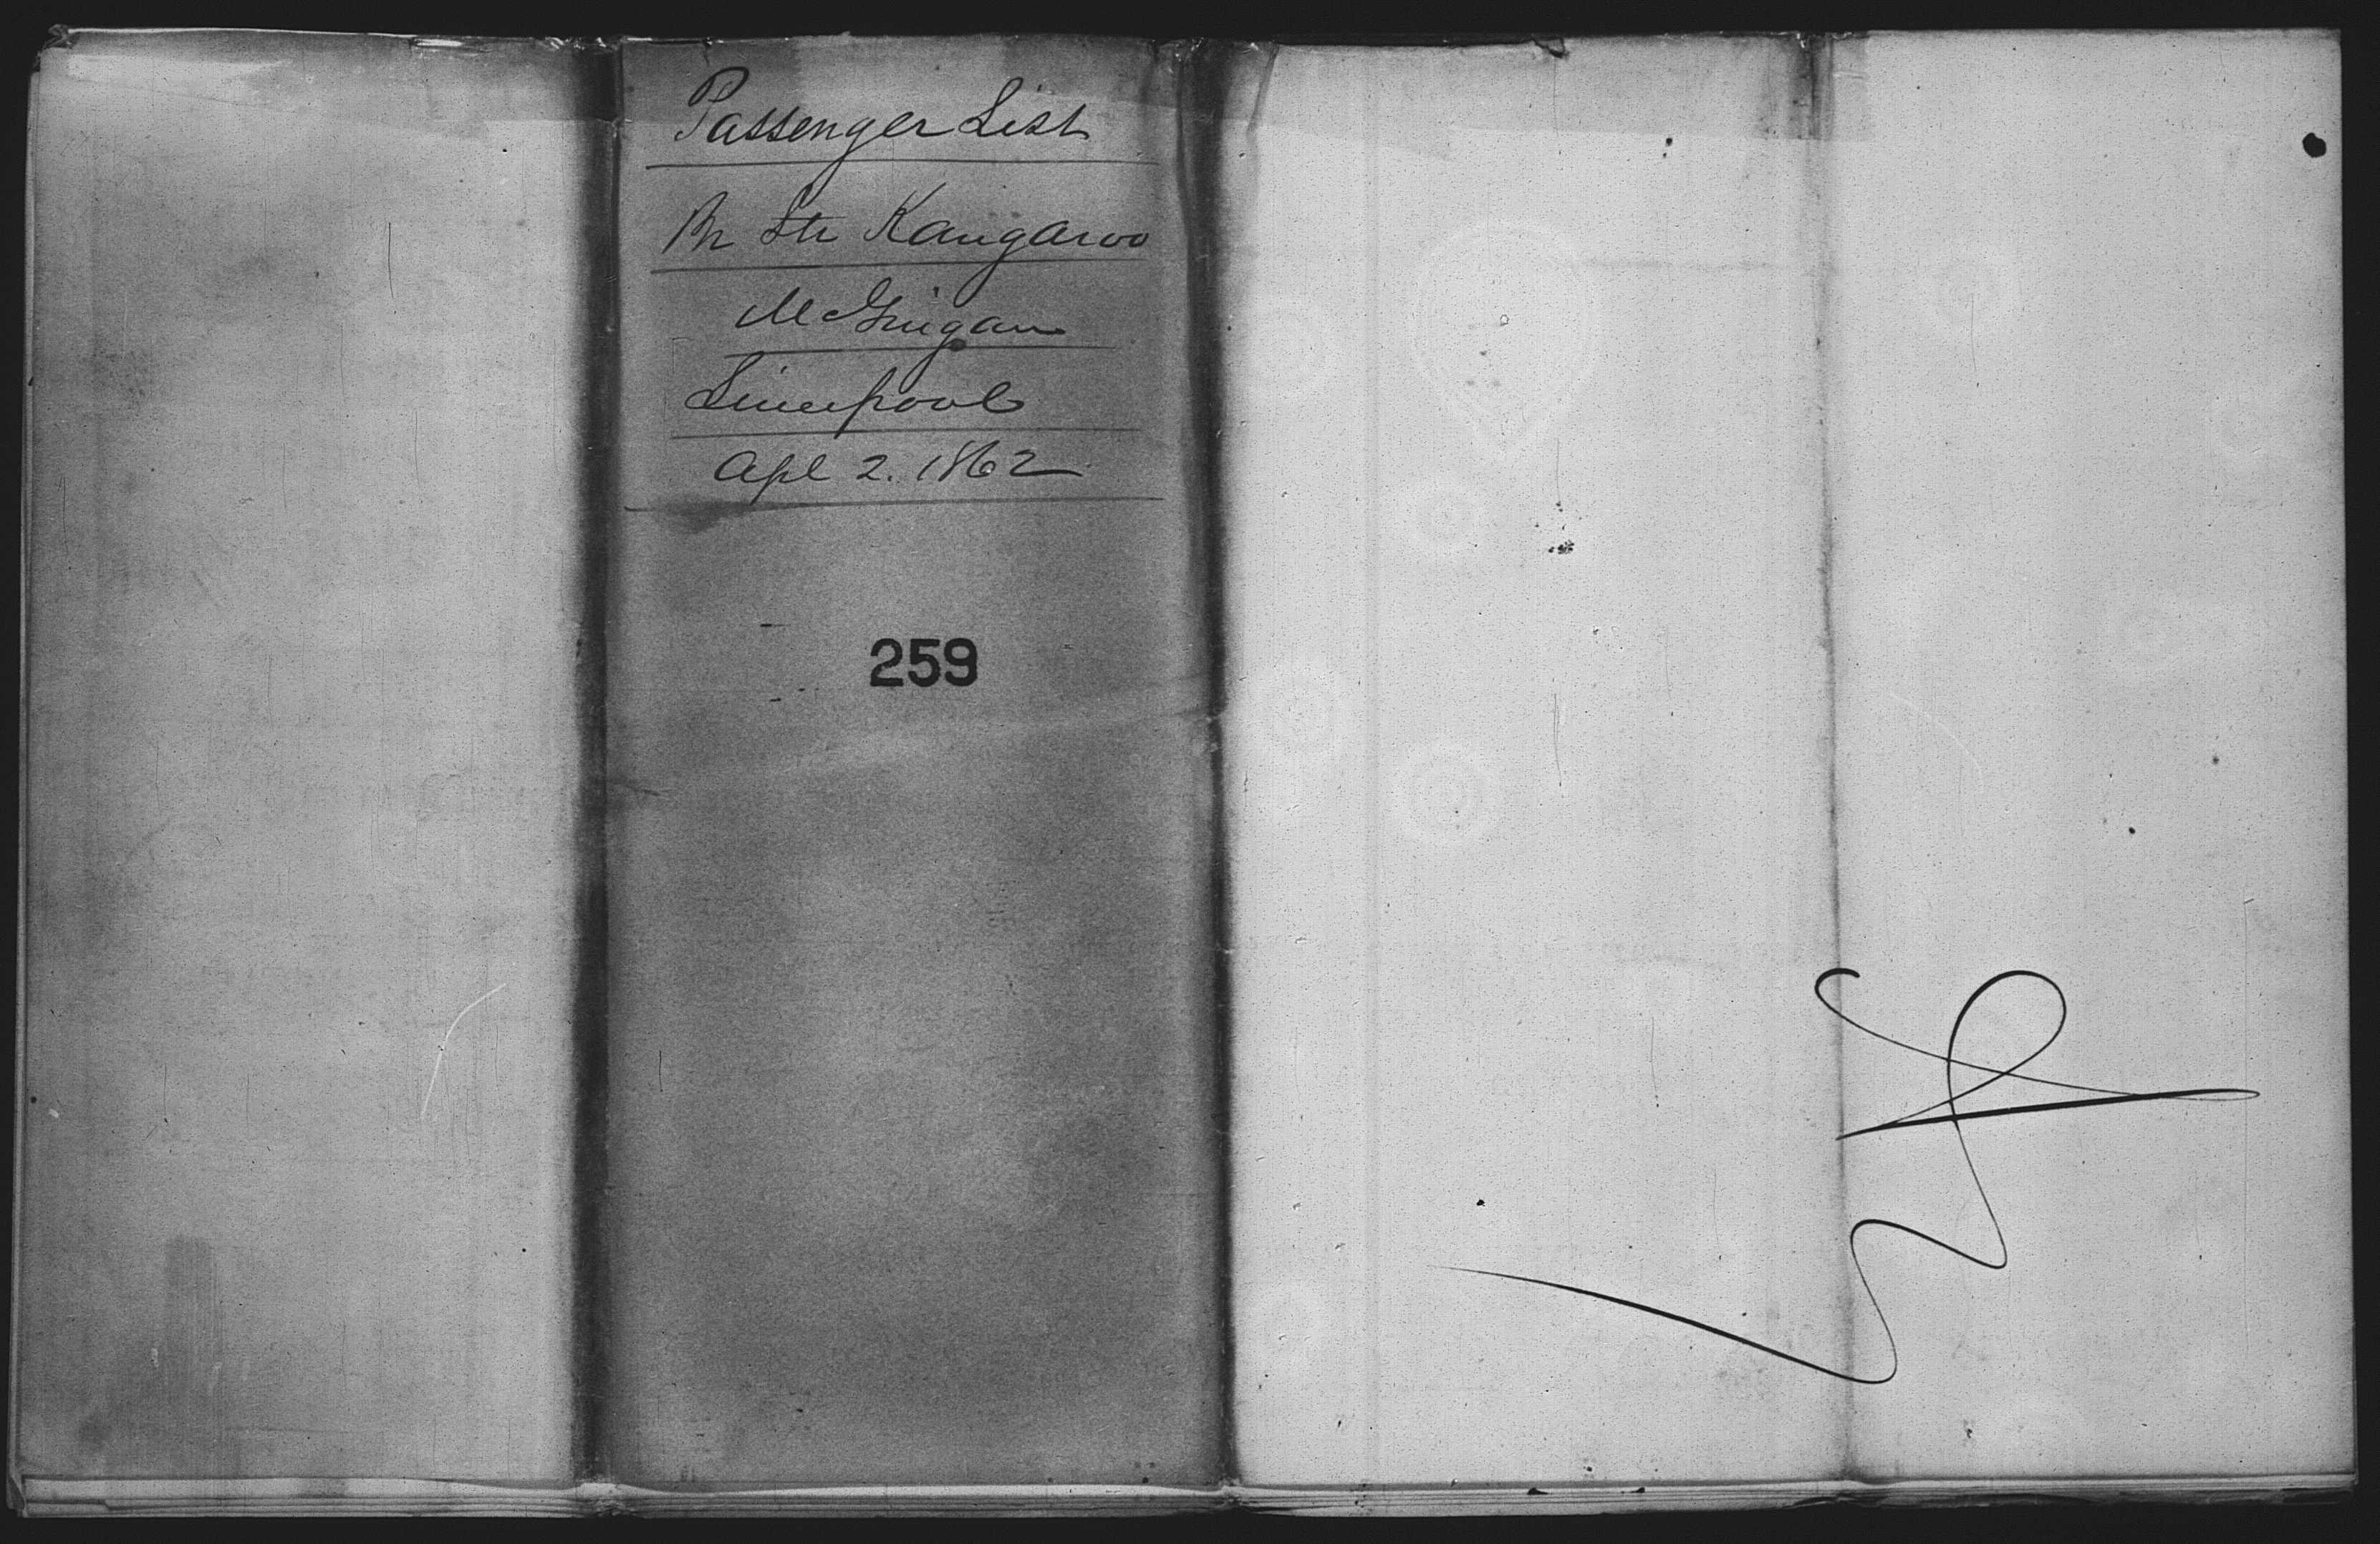 Passenger List
Br Str Kangaroo
McGuigan
Liverpool
Apl 2. 1862
259